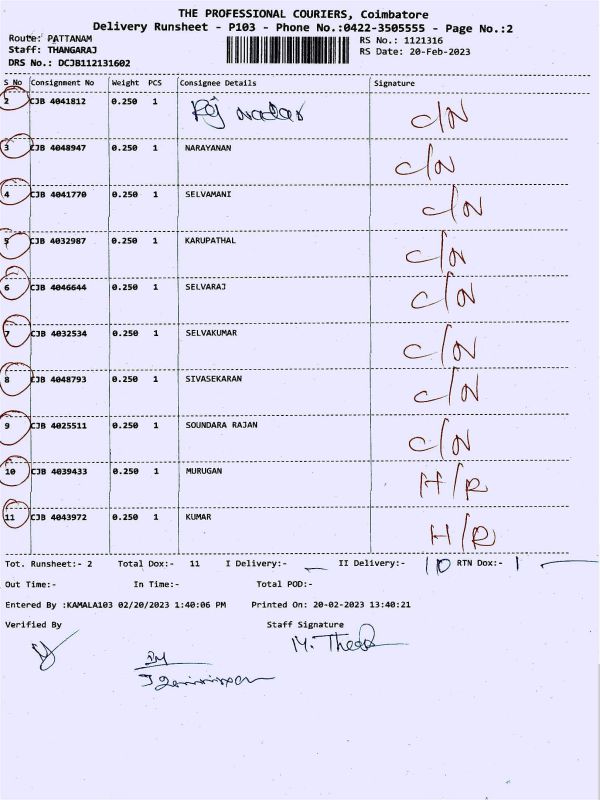 THE PROFESSIONAL COURIERS, Coimbatore
Delivery Runsheet - P103 - Phone No.:0422-3505555 - Page No.:2
Route: PATTANAM RS No.: 1121316
Staff: THANGARAJ RS Date: 20-Feb-2023
DRS No.: DCJB112131602
S No Consignment No Weight PCS Consignee Details Signature
2 CJB 4041812 0.250 1 C/N
3 CJB 4048947 0.250 1 NARAYANAN C/N
4 CJB 4041770 0.250 1 SELVAMANI C/N
5 CJB 4032987 0.250 1 KARUPATHAL C/N
6 CJB 4046644 0.250 1 SELVARAJ C/N
7 CJB 4032534 0.250 1 SELVAKUMAR C/N
8 CJB 4048793 0.250 1 SIVASEKARAN C/N
9 CJB 4025511 0.250 1 SOUNDARA RAJAN C/N
10 CJB 4039433 0.250 1 MURUGAN H/R
11 CJB 4043972 0.250 1 KUMAR H/R
Tot. Runsheet:- 2 Total Dox:- 11 I Delivery:- — II Delivery:- 10 RTN Dox:- 1
Out Time:- In Time:- Total POD:-
Entered By :KAMALA103 02/20/2023 1:40:06 PM Printed On: 20-02-2023 13:40:21
Verified By Staff Signature